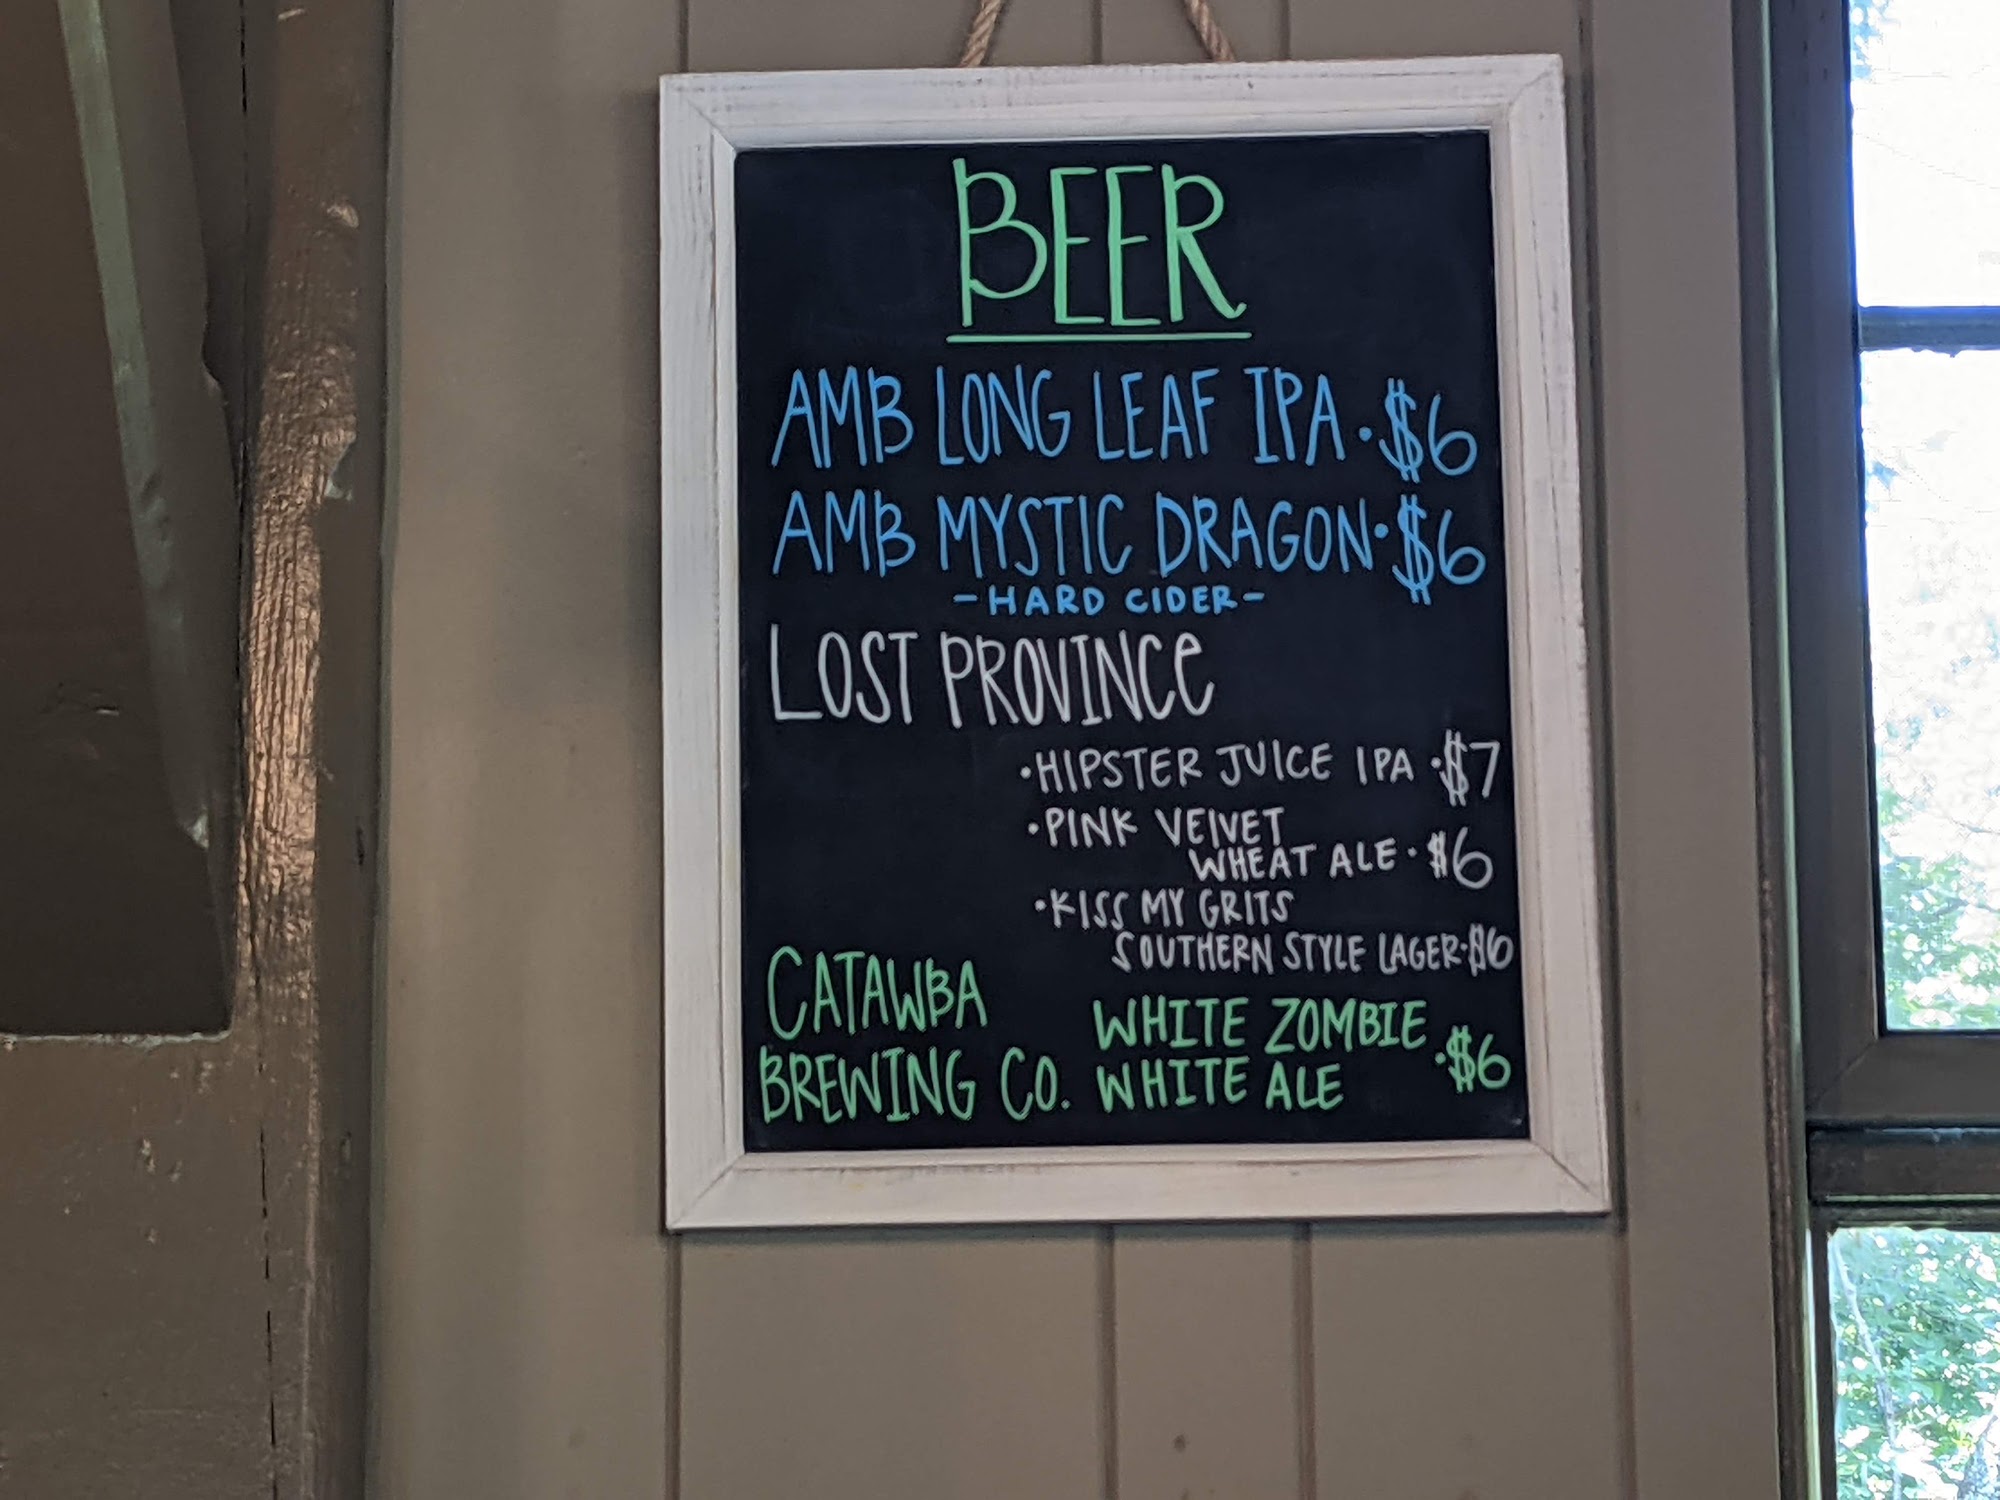 BEER
AMB LONG LEAF IPA · $6
AMB MYSTIC DRAGON · $6
- HARD CIDER -
LOST PROVINCE
· HIPSTER JUICE IPA · $7
· PINK VELVET
WHEAT ALE · $6
· KISS MY GRITS
SOUTHERN STYLE LAGER · $6
CATAWBA
BREWING CO.
WHITE ZOMBIE
WHITE ALE · $6